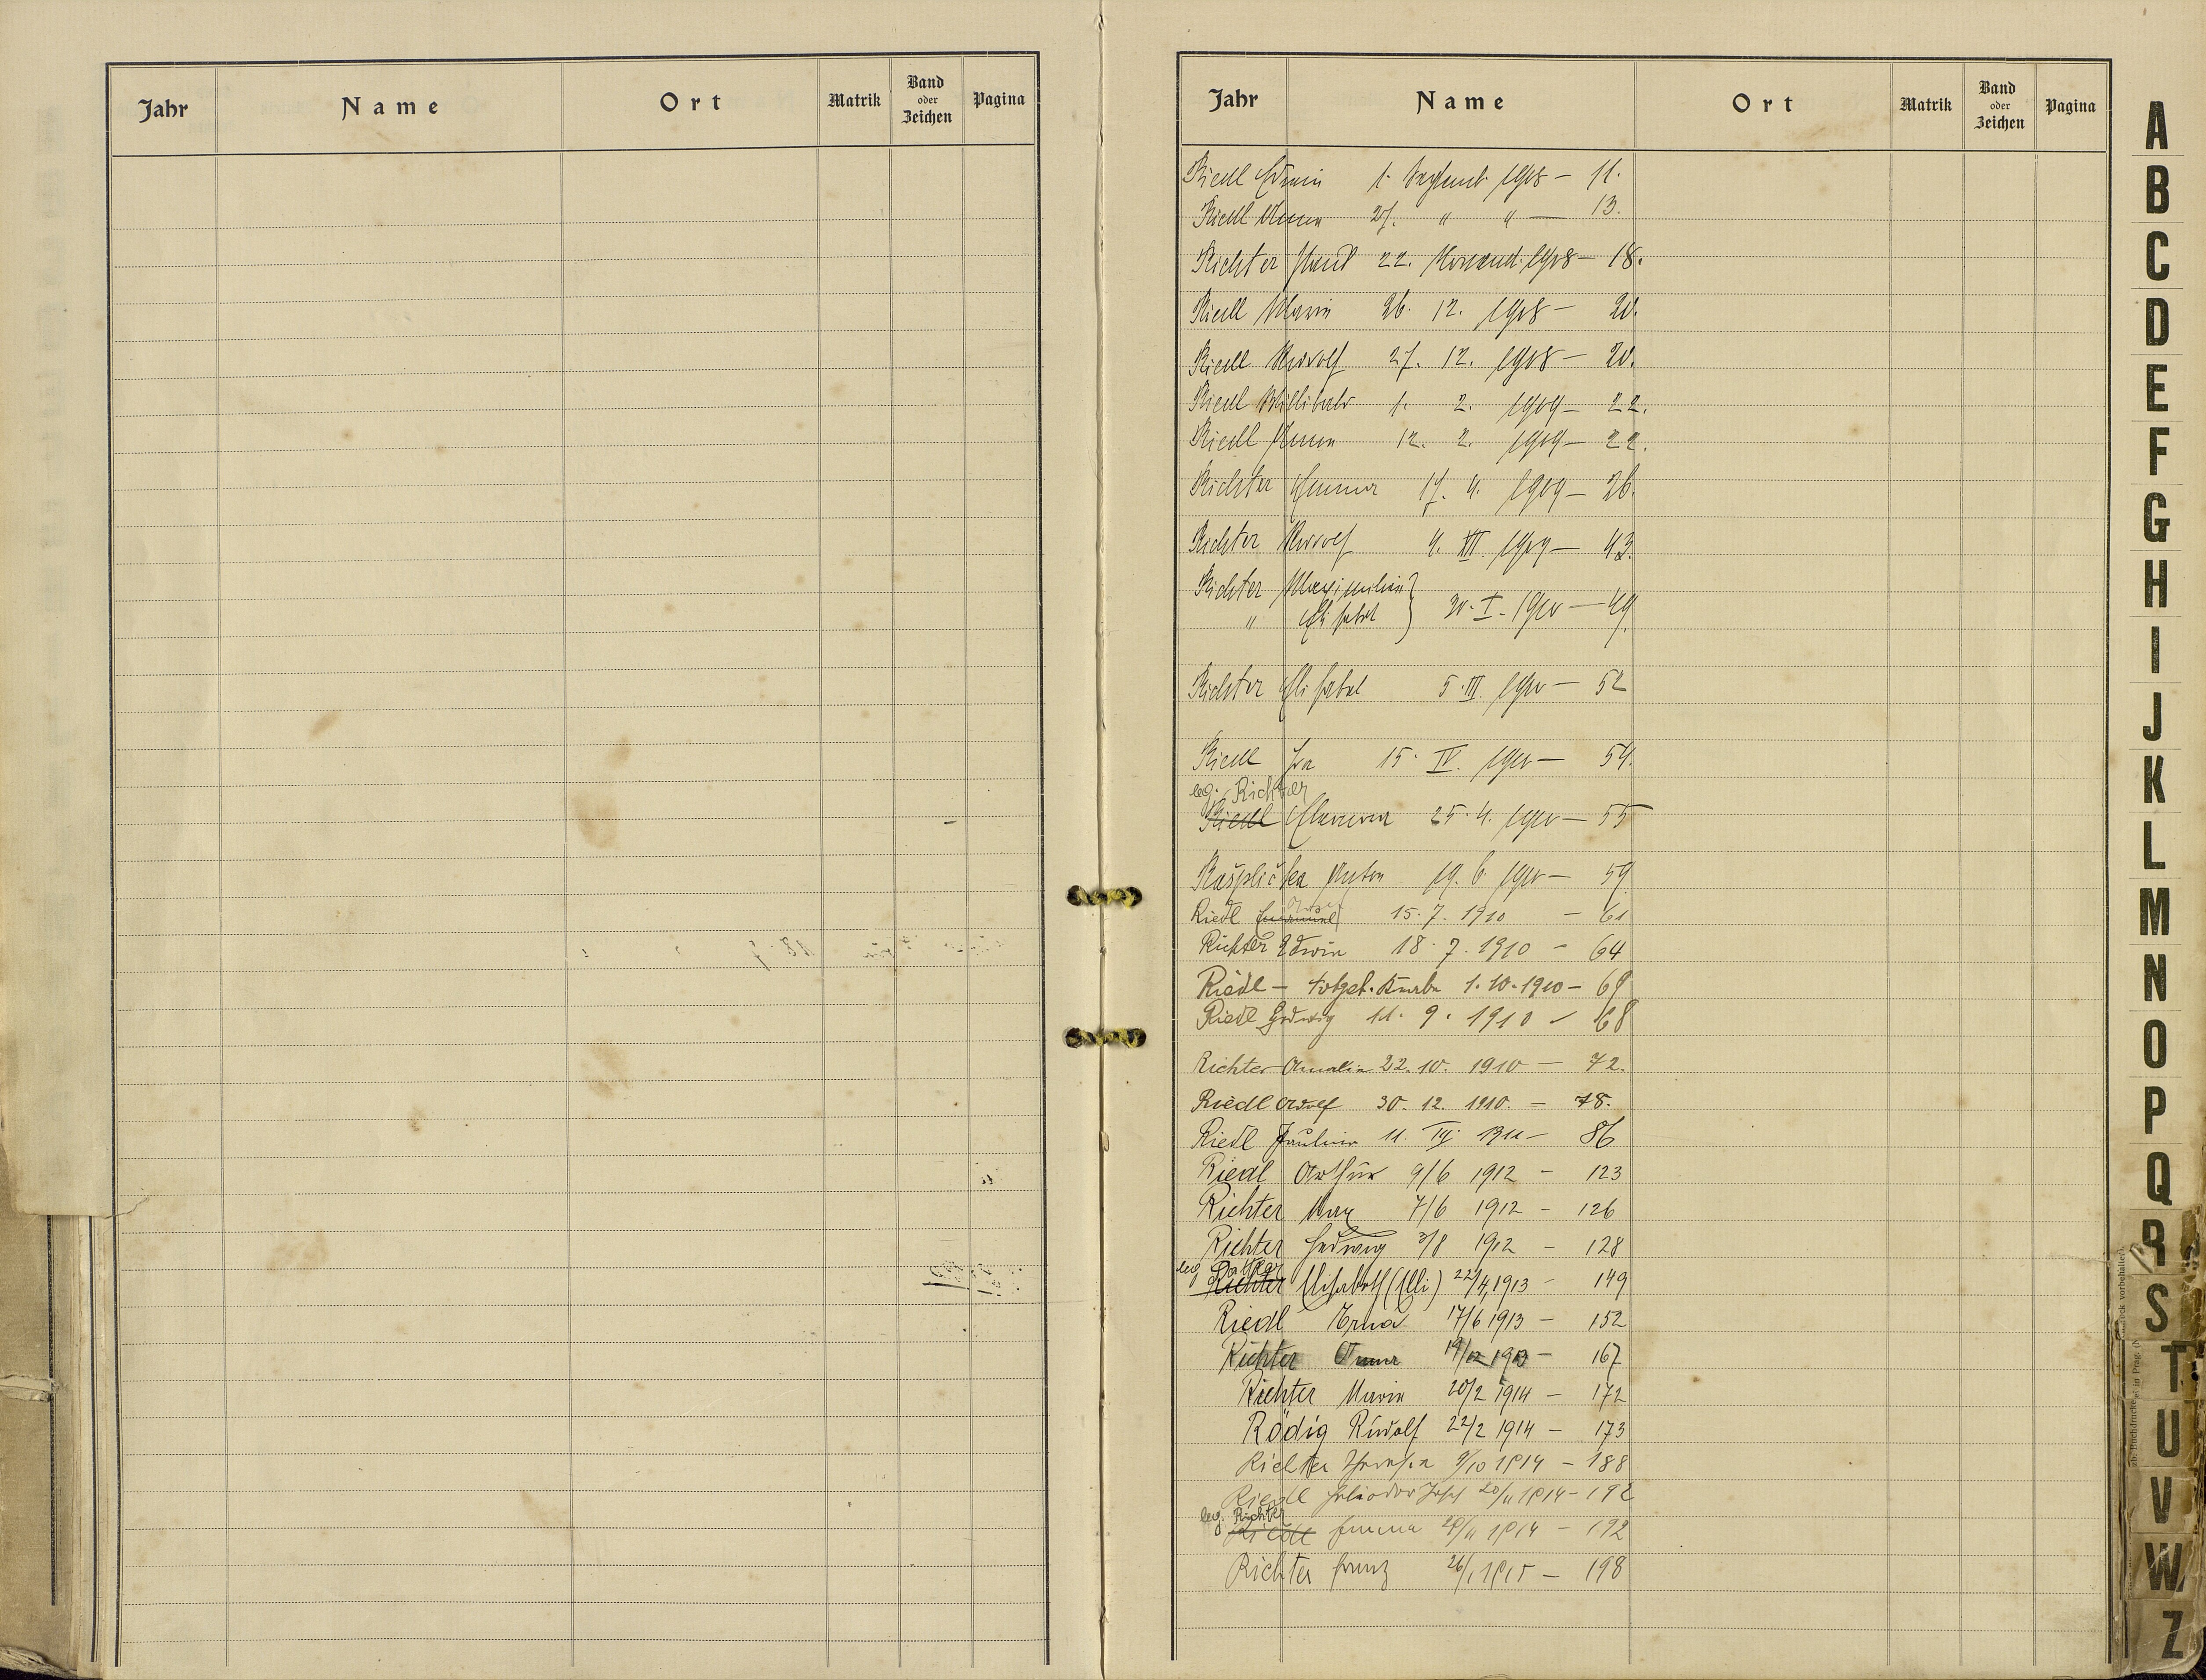 Jahr Name Ort Matrik Band oder Zeichen Pagina
Jahr Name Ort Matrik Band oder Zeichen Pagina
Riedl Edwin 1. Septemb. 1908 — 11.
Riedl Anna 27. " " — 13.
Richter Paul 22. Novemb. 1908 — 18.
Riedl Maria 26. 12. 1908 — 20.
Riedl Rudolf 27. 12. 1908 — 20.
Riedl Willibald 1. 2. 1909 — 22.
Riedl Anna 12. 2. 1909 — 22.
Richter Emma 17. 4. 1909 — 26.
Richter Rudolf 4. XII 1909 — 43.
Richter Maximilian } 20. I. 1910 — 49
" Elisabet
Richter Elisabet 5. III. 1910 — 52
Riedl 15. IV. 1910 — 54.
leg. Richter
Riedl Eleonora 25. 4. 1910 — 55
Rašplička Anton 19. 6. 1910 — 59
Riedl 15. 7. 1910 — 61
Richter Edwin 18. 7. 1910 — 64
Riedl — totgeb. Knabe 1. 10. 1910 — 69
Riedl Hedwig 11. 9. 1910 — 68
Richter Amalia 22. 10. 1910 — 72.
Riedl Adolf 30. 12. 1910. — 78.
Riedl Paulina 11. III. 1911 — 86
Riedl Arthur 9/6 1912 — 123
Richter Max 7/6 1912 — 126
Richter Hedwig 3/8 1912 — 128
leg.
Richter Elisabeth (Elli) 22/4 1913 — 149
Riedl Erna 17/6 1913 — 152
Richter Anna 19/12 1913 — 167
Richter Maria 20/2 1914 — 172
Rödig Rudolf 22/2 1914 — 173
Richter Theresia 9/10 1914 — 188
Riedl Heliodor Josef 20/11 1914 — 192
leg. Richter
Riedl Emma 29/11 1914 — 192
Richter Franz 26/1 1915 — 198
A
B
C
D
E
F
G
H
I
J
K
L
M
N
O
P
Q
R
S
T
U
V
W
Z